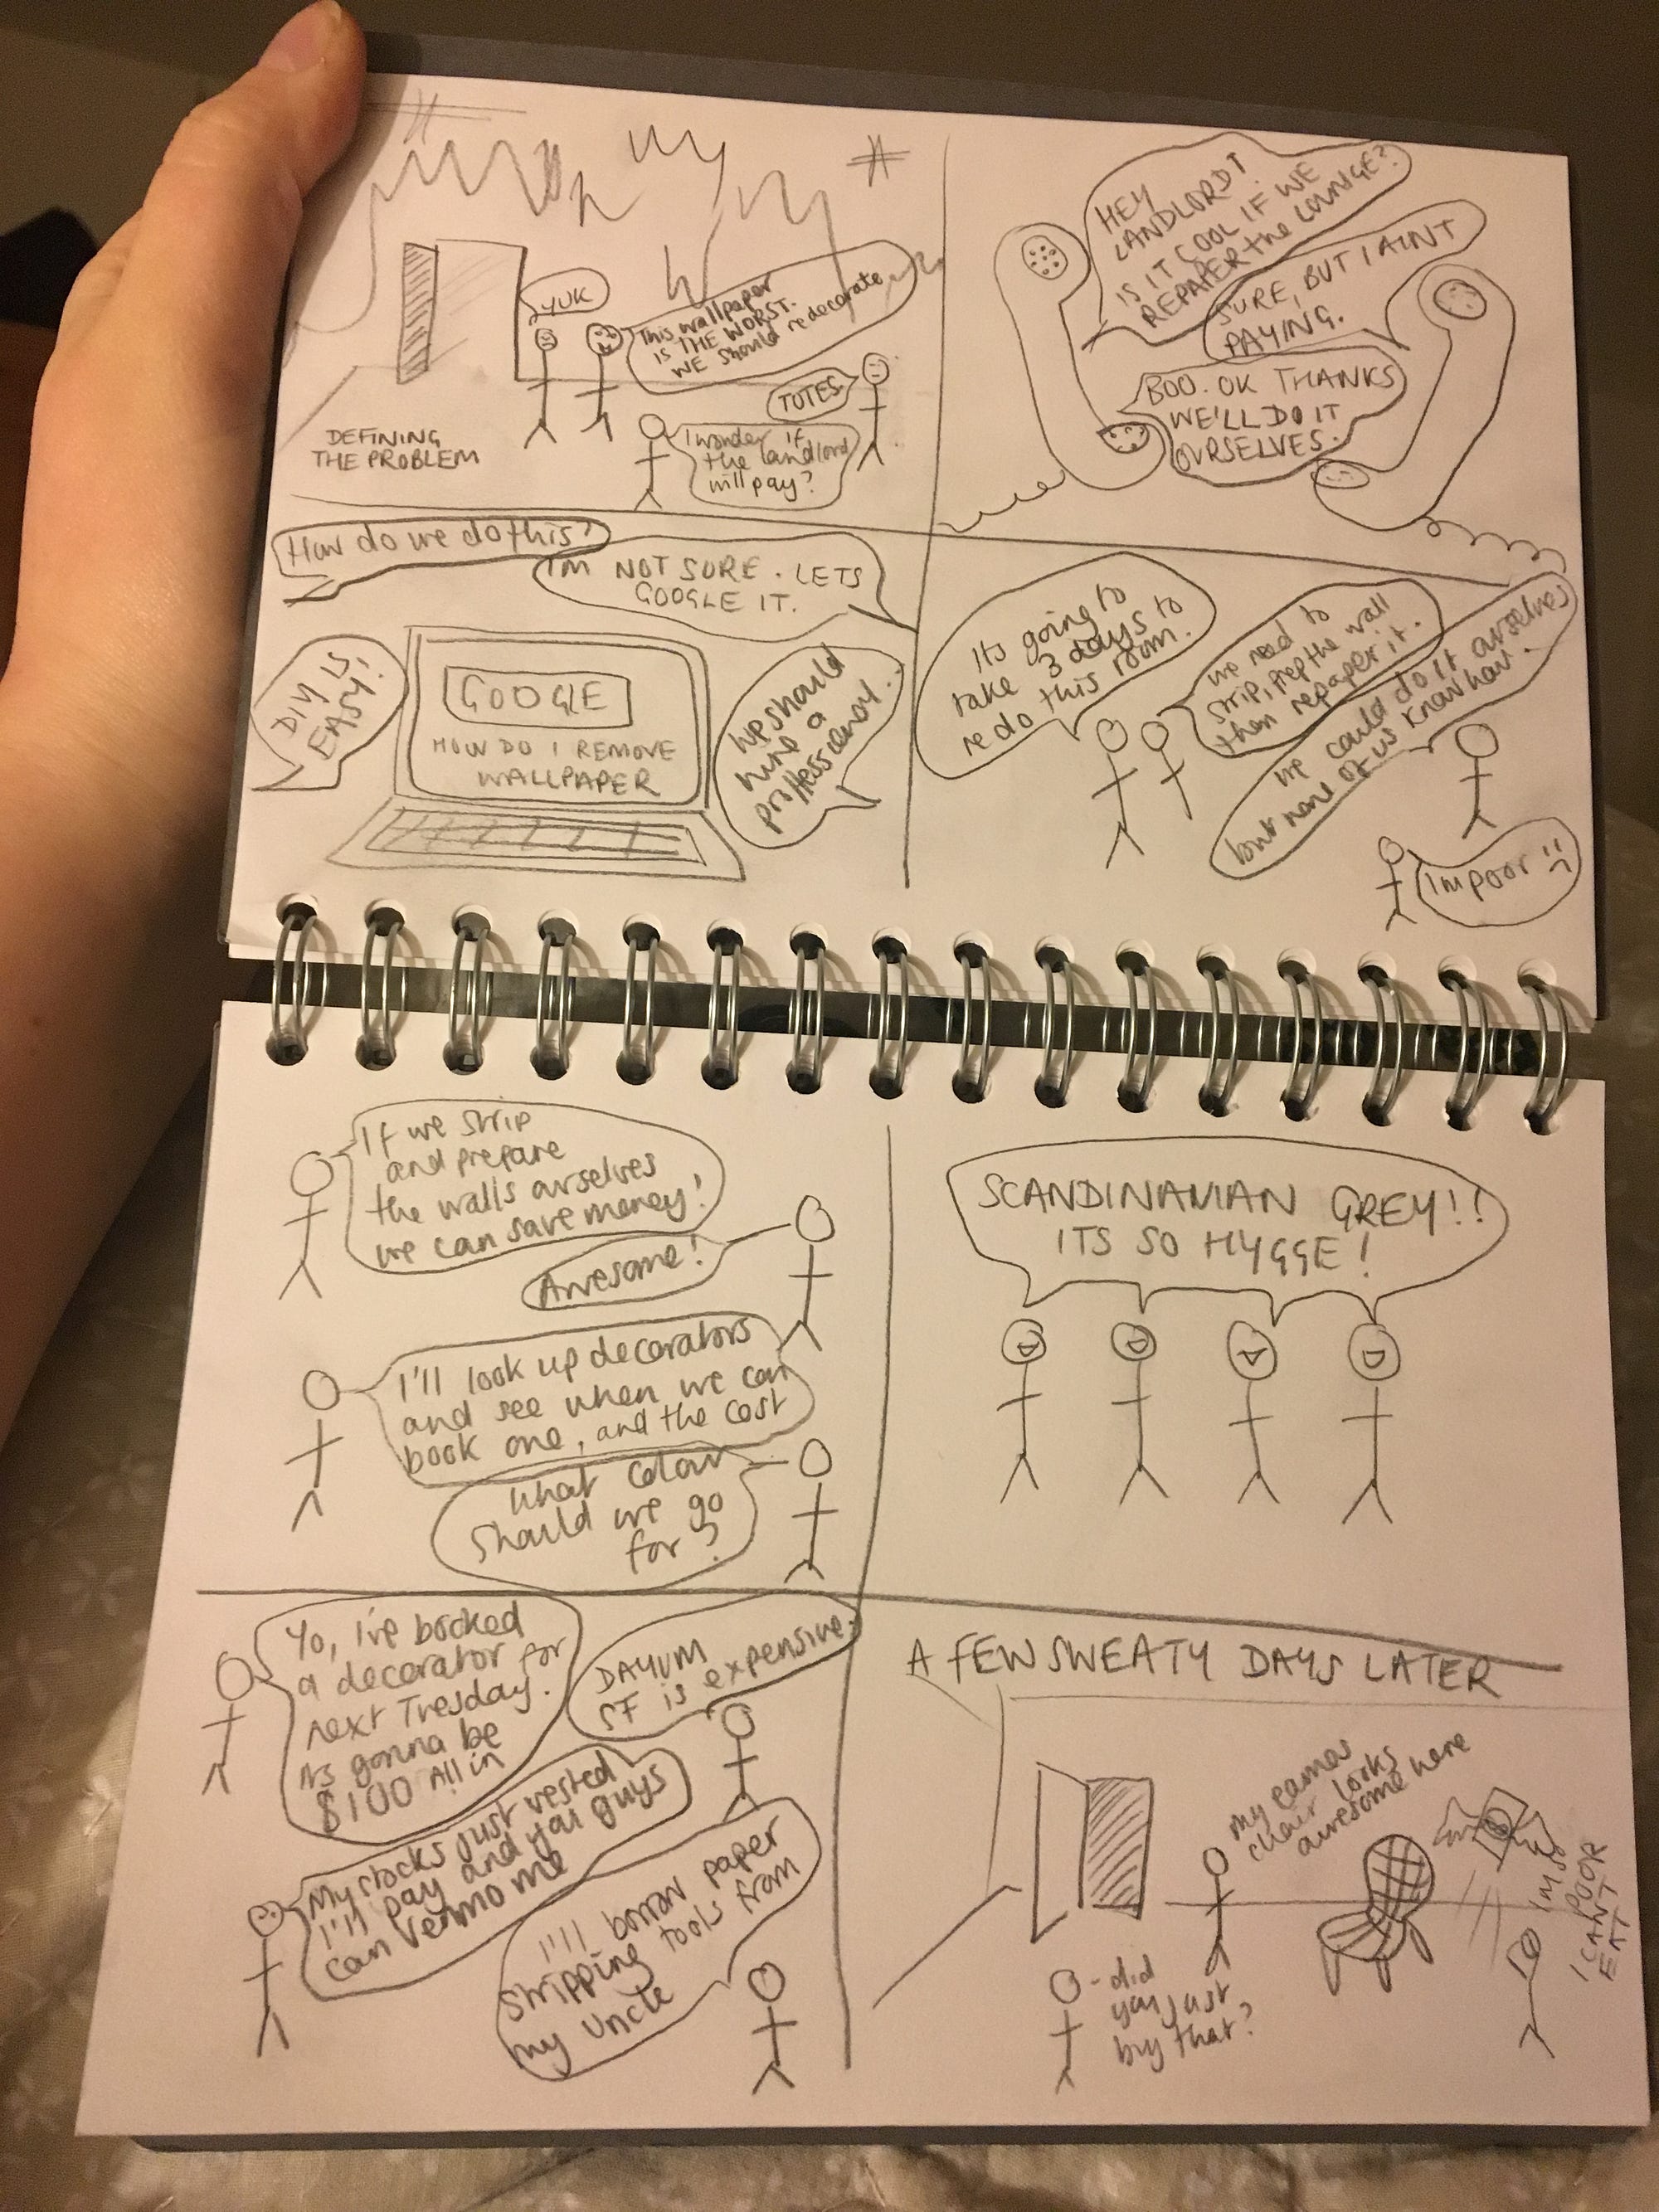 YUK
This wallpaper
IS THE WORST.
WE Should redecorate
TOTES
I wonder if
the landlord
will pay?
DEFINING
THE PROBLEM
HEY
LANDLORD!
IS IT COOL IF WE
REPAPER the LOUNGE?
SURE, BUT I AINT
PAYING.
BOO. OK THANKS
WE'LL DO IT
OURSELVES.
How do we do this?
I'm NOT SURE. LETS
GOOGLE IT.
DIY IS
EASY!
GOOGLE
HOW DO I REMOVE
WALLPAPER
We should
hire a
proffessional...
Its going to
take 3 days to
redo this room.
we need to
strip, prep the wall
then repaper it.
we could do it ourselves
but none of us know how.
Im poor :(
If we strip
and prepare
the walls ourselves
we can save money!
Awesome!
I'll look up decorators
and see when we can
book one, and the cost
what colour
should we go
for?
SCANDINAVIAN GREY!!
ITS SO HYGGE!
Yo, I've booked
a decorator for
next Tuesday.
its gonna be
$100 All in
DAYUM
SF is expensive.
My stocks just vested
I'll pay and you guys
can venmo me
I'll borrow paper
stripping tools from
my uncle
A FEW SWEATY DAYS LATER
my eames
chair looks
awesome here
did
you just
buy that?
IM SO
POOR
I CANT
EAT